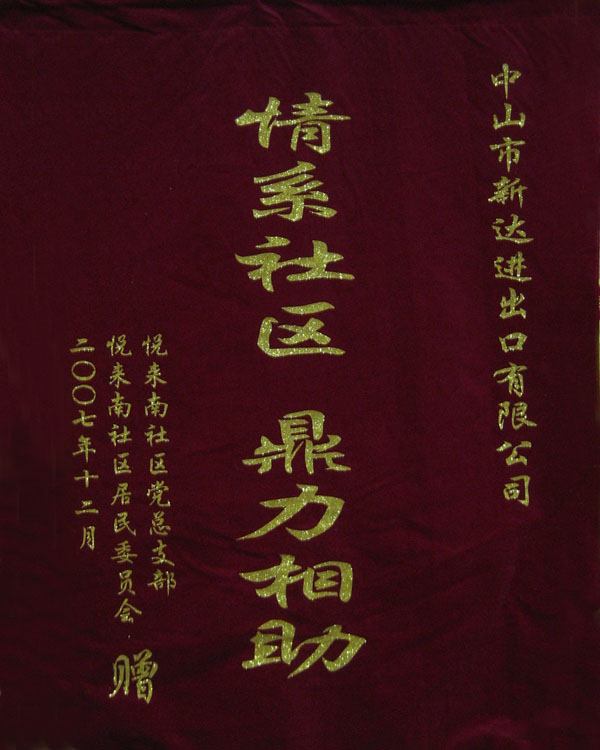 中山市新达进出口有限公司
情系社区 鼎力相助
悦来南社区党总支部
悦来南社区居民委员会 赠
二〇〇七年十二月